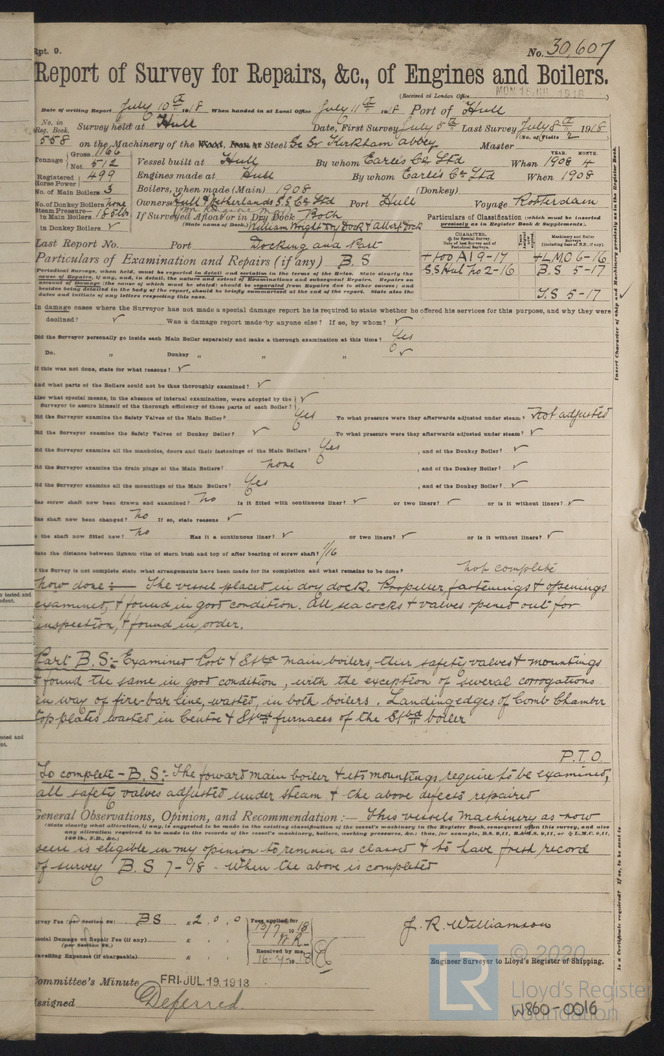 Rpt. 9.
No. 30,607
Report of Survey for Repairs, &c., of Engines and Boilers.
(Received at London Office
MON 15 JUL 1918
Date of writing Report July 10th 1918 When handed in at Local Office July 11th 1918 Port of Hull
No. in Reg. Book. Survey held at Hull Date, First Survey July 5th Last Survey July 8th 1918
(No. of Visits 2
558 on the Machinery of the Wood, Iron or Steel Sc Sr Kirkham Abbey Master
Tonnage Gross 1166 Net 512 Vessel built at Hull By whom Earle's Co Ltd When 1908 4
YEAR. MONTH.
Registered Horse Power 499 Engines made at Hull By whom Earle's Co Ltd When 1908
No. of Main Boilers 3 Boilers, when made (Main) 1908 (Donkey)
No. of Donkey Boilers none Owners Hull & Netherlands S.S. Co Ltd Port Hull Voyage Rotterdam
Steam Pressure in Main Boilers If Surveyed Afloat or in Dry Dock Both
in Donkey Boilers ✓ (State name of Dock.) William Wright Dry Dock & Albert Dock
Particulars of Classification (which must be inserted precisely as in Register Book & Supplements).
Last Report No. Port Docking and Part
Particulars of Examination and Repairs (if any) B.S
CHARACTER.
+100 A1 9-17 +LMC 6-16
SS Hul no 2-16 B.S 5-17
T.S 5-17 ✓
Periodical Surveys, when held, must be reported in detail and seriatim in the terms of the Rules. State clearly the
cause of Repairs, if any, and, in detail, the nature and extent of Examinations and subsequent Repairs. Repairs on
account of Damage (the cause of which must be stated) should be separated from Repairs due to other causes; and
besides being detailed in the body of the report, should be briefly summarised at the end of the report. State also the
dates and initials of any letters respecting this case.
In damage cases where the Surveyor has not made a special damage report he is required to state whether he offered his services for this purpose, and why they were
declined? ✓ Was a damage report made by anyone else? If so, by whom? ✓
Did the Surveyor personally go inside each Main Boiler separately and make a thorough examination at this time? Yes
Do. „ Donkey „ „ „ ✓
If this was not done, state for what reasons? ✓
And what parts of the Boilers could not be thus thoroughly examined? ✓
Also what special means, in the absence of internal examination, were adopted by the
Surveyor to assure himself of the thorough efficiency of those parts of each Boiler? ✓
Did the Surveyor examine the Safety Valves of the Main Boiler? Yes To what pressure were they afterwards adjusted under steam? Not adjusted
Did the Surveyor examine the Safety Valves of Donkey Boiler? ✓ To what pressure were they afterwards adjusted under steam? ✓
Did the Surveyor examine all the manholes, doors and their fastenings of the Main Boilers? Yes , and of the Donkey Boiler? ✓
Did the Surveyor examine the drain plugs of the Main Boilers? none , and of the Donkey Boiler? ✓
Did the Surveyor examine all the mountings of the Main Boilers? Yes , and of the Donkey Boiler? ✓
Has screw shaft now been drawn and examined? No Is it fitted with continuous liner? ✓ or two liners? ✓ or is it without liners? ✓
Has shaft now been changed? No If so, state reasons ✓
Is the shaft now fitted new? No Has it a continuous liner? ✓ or two liners? ✓ or is it without liners? ✓
State the distance between lignum vitæ of stern bush and top of after bearing of screw shaft? 1/16
If the Survey is not complete state what arrangements have been made for its completion and what remains to be done? Not complete
Now done :— The vessel placed in dry dock. Propeller, fastenings & openings
examined, & found in good condition. All sea cocks & valves opened out for
inspection, & found in order.
Part B.S:- Examined Port & Stbd main boilers, their safety valves & mountings
& found the same in good condition, with the exception of several corrogations
in way of fire-bar line, wasted, in both boilers. Landing edges of Comb Chamber
top plates wasted in Centre & Stbd furnaces of the Stbd boiler
P.T.O.
To complete - B.S:- The foward main boiler & its mountings require to be examined,
all safety valves adjusted under steam & the above defects repaired
General Observations, Opinion, and Recommendation :— This vessels Machinery as now
(State clearly what alteration, if any, is suggested to be made in the existing classification of the vessel's machinery in the Register Book, consequent upon this survey, and also
any alteration required to be made in the records of the vessel's machinery, boilers, working pressures, &c.; thus, for example, B.S. 9,11, B.&M.S. 9,11, or + L.M.C. 9,11,
140 lb., F.D., &c.)
seen is eligible in my opinion to remain as classed & to have fresh record
of survey B.S 7-18 - When the above is completed
Survey Fee (per Section 28) BS £ 2 , 0 , 0
Special Damage or Repair Fee (if any) (per Section 28.) £
Travelling Expenses (if chargeable) £
Fees applied for 13/7 1918
Received by me,
J. R. Williamson
Engineer Surveyor to Lloyd's Register of Shipping.
Committee's Minute FRI. JUL. 19. 1918
Assigned Deferred
© 2020
LR
Lloyd's Register
Foundation
W860-0016
Insert Character of Ship and Machinery precisely as in the Register Book.